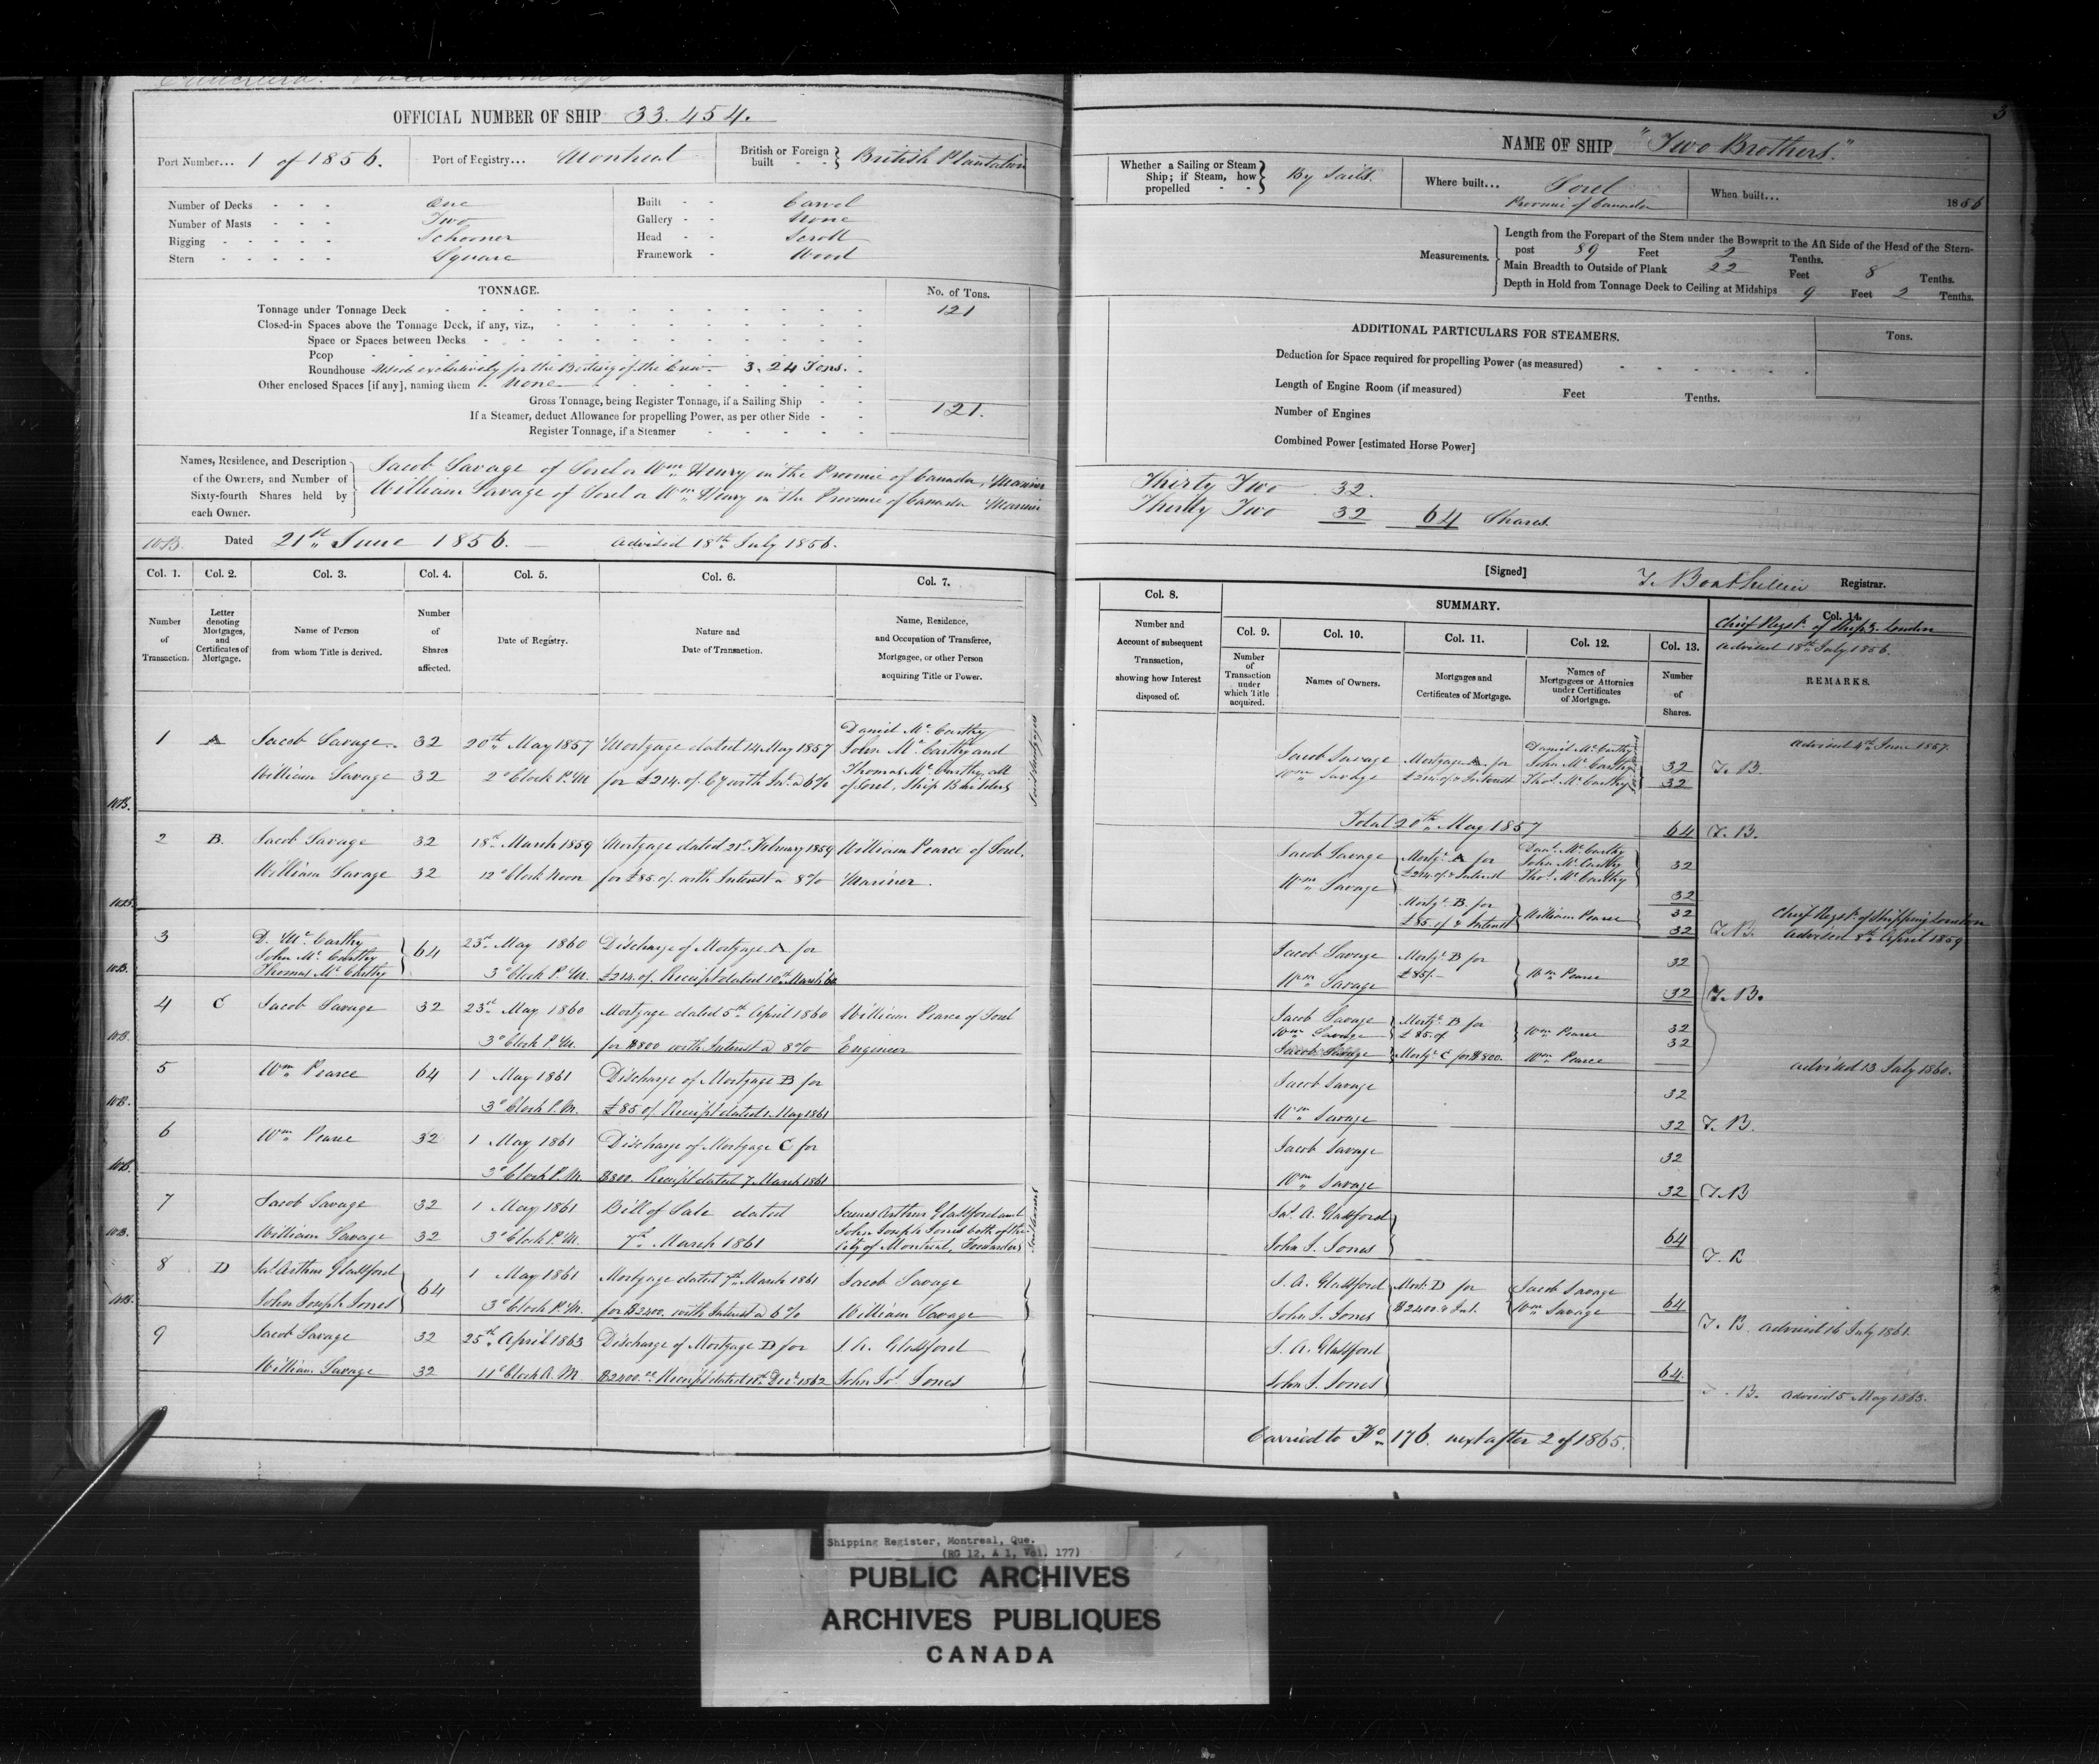 OFFICIAL NUMBER OF SHIP 33.454.
Port Number... 1 of 1856.
Port of Registry... Montreal
British or Foreign built - - } British Plantation
Number of Decks - - - One
Number of Masts - - - Two
Rigging - - - - - Schooner
Stern - - - - - Square
Built - - Carvel
Gallery - - None
Head - - Scroll
Framework - Wood
TONNAGE.
No. of Tons.
Tonnage under Tonnage Deck 121
Closed-in Spaces above the Tonnage Deck, if any, viz.,
Space or Spaces between Decks
Poop
Roundhouse Used exclusively for the Berthing of the Crew - 3.24 Tons.
Other enclosed Spaces [if any], naming them None
Gross Tonnage, being Register Tonnage, if a Sailing Ship
121.
If a Steamer, deduct Allowance for propelling Power, as per other Side
Register Tonnage, if a Steamer
Names, Residence, and Description of the Owners, and Number of Sixty-fourth Shares held by each Owner.
Jacob Savage of Sorel or Wm Henry in the Province of Canada, Mariner
William Savage of Sorel or Wm Henry in the Province of Canada Mariner
Dated 21st June 1856. Advised 18th July 1856.
Col. 1. Col. 2. Col. 3. Col. 4. Col. 5. Col. 6. Col. 7.
Number of Transaction.
Letter denoting Mortgages, and Certificates of Mortgage.
Name of Person from whom Title is derived.
Number of Shares affected.
Date of Registry.
Nature and Date of Transaction.
Name, Residence, and Occupation of Transferee, Mortgagee, or other Person acquiring Title or Power.
Daniel McCarthy
1 A Jacob Savage 32 20th May 1857 Mortgage dated 14 May 1857 John McCarthy and
William Savage 32 2 o'Clock P.M. for £214. of Cy with Int. a 6% Thomas McCarthy all
of Sorel, Ship Builders
2 B. Jacob Savage 32 18th March 1859 Mortgage dated 21st February 1859 William Pearce of Sorel.
William Savage 32 12 o'Clock Noon for £85.0/. with Interest a 8% Mariner.
3 D. McCarthy
John McCarthy
Thomas McCarthy } 64 23rd May 1860 Discharge of Mortgage A for
3 o'Clock P.M. £214.0/. Receipt dated 10th March 60
4 C Jacob Savage 32 23rd May 1860 Mortgage dated 5th April 1860 William Pearce of Sorel
3 o'Clock P.M. for $800 with Interest a 8% Engineer
5 Wm Pearce 64 1 May 1861 Discharge of Mortgage B for
3 o'Clock P.M. £85 of Receipt dated 1. May 1861
6 Wm Pearce 32 1 May 1861 Discharge of Mortgage C for
3 o'Clock P.M. $800. Receipt dated 7 March 1861
7 Jacob Savage 32 1 May 1861 Bill of Sale dated James Arthur Glassford and
William Savage 32 3 o'Clock P.M. 7th March 1861 John Joseph Jones both of the
City of Montreal, Forwarders
8 D Jas. Arthur Glassford
John Joseph Jones } 64 1 May 1861 Mortgage dated 7th March 1861 Jacob Savage
3 o'Clock P.M. for $2400. with Interest a 6% William Savage
9 Jacob Savage 32 25th April 1863 Discharge of Mortgage D for J. A. Glassford
William Savage 32 11 o'Clock A.M. $2400.00 Receipt dated Decr 1862 John Jos. Jones
3
NAME OF SHIP "Two Brothers."
Whether a Sailing or Steam Ship; if Steam, how propelled - - } By Sails.
Where built... Sorel Province of Canada
When built... 1856
Measurements.
Length from the Forepart of the Stem under the Bowsprit to the Aft Side of the Head of the Stern-
post 89 Feet 2 Tenths.
Main Breadth to Outside of Plank 22 Feet 8 Tenths.
Depth in Hold from Tonnage Deck to Ceiling at Midships 9 Feet 2 Tenths.
ADDITIONAL PARTICULARS FOR STEAMERS.
Tons.
Deduction for Space required for propelling Power (as measured)
Length of Engine Room (if measured) Feet Tenths.
Number of Engines
Combined Power [estimated Horse Power]
Thirty Two 32.
Thirty Two 32 64 Shares.
[Signed] Registrar.
Col. 8.
Number and Account of subsequent Transaction, showing how Interest disposed of.
SUMMARY.
Col. 9. Col. 10. Col. 11. Col. 12. Col. 13. Col. 14.
Number of Transaction under which Title acquired.
Names of Owners.
Mortgages and Certificates of Mortgage.
Names of Mortgagees or Attornies under Certificates of Mortgage.
Number of Shares.
Chief Regstr. of Ships. London
Advised 18th July 1856.
REMARKS.
Advised 4th June 1857.
Jacob Savage Mortgage A for Daniel McCarthy 32 T. B.
Wm Savage £214.0/ & Interest John McCarthy 32
Thos. McCarthy
Total 20th May 1857 64 T. B.
Jacob Savage Mortge. A for Danl. McCarthy 32
Wm Savage £214.0/ & Interest John McCarthy 32
Thos. McCarthy
Mortge. B. for William Pearce 32
£85.0/ & Interest 32 T.B.
Chief Regstr. of Shipping London
Advised 8th April 1859
Jacob Savage Mortge. B for 32
Wm Savage £85/- Wm Pearce 32 T.B.
Jacob Savage Mortge. B for 32
Wm Savage £85.of Wm Pearce 32
Jacob Savage Mortge. C for $800. Wm Pearce
Advised 13 July 1860.
Jacob Savage 32
Wm Savage 32 T.B.
Jacob Savage 32
Wm Savage 32 T.B
Jas. A. Glassford
John J. Jones } 64 T. B
J. A. Glassford Mort: D for Jacob Savage
John J. Jones $2400. & Int. Wm Savage 64
T. B. Advised 16 July 1861.
J. A. Glassford
John J. Jones } 64
T. B. Advised 5 May 1863.
Carried to Fo 176. next after 2 of 1865.
Shipping Register, Montreal, Que.
(RG 12, A 1, Vol. 177)
PUBLIC ARCHIVES
ARCHIVES PUBLIQUES
CANADA